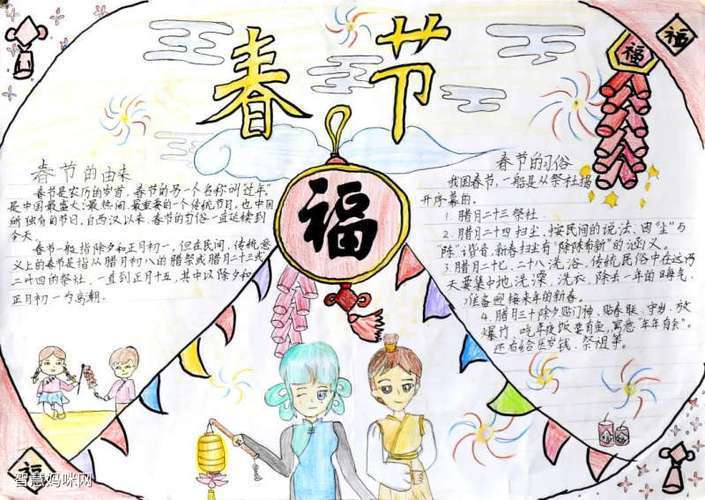 春节
福
福
福
春节的由来
春节是农历的岁首，春节的另一个名称叫过年，
是中国最盛大、最热闹、最重要的一个传统节日，也中国
所独有的节日，自西汉以来，春节的习俗一直延续到
今天
春节一般指除夕和正月初一，但在民间，传统意
义上的春节是指从腊月初八的腊祭或腊月二十三或
二十四的祭社，一直到正月十五，其中以除夕和
正月初一为高潮。
春节的习俗
我国春节，一般是从祭社揭
开序幕的。
1. 腊月二十三祭社
2. 腊月二十四扫尘，按民间的说法：因“尘”与
“陈”谐音，新春扫尘有“除陈布新”的涵义。
3. 腊月二十七、二十八洗浴，传统民俗中在这两
天要集中地洗澡、洗衣，除去一年的晦气，
准备迎接来年的新春。
4. 腊月三十除夕贴门神、贴春联、守岁、放
爆竹，吃年夜饭要有鱼，寓意“年年有余”。
还有给压岁钱、祭祖等。
福
智慧妈咪网